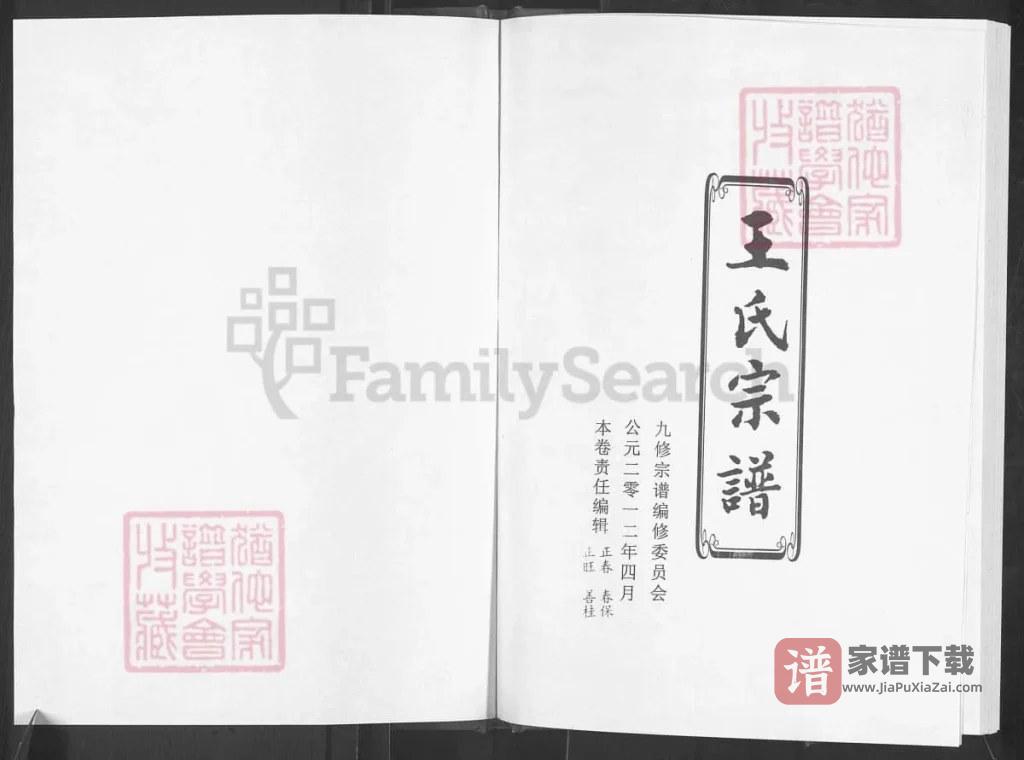 王氏宗譜
九修宗谱编修委员会
公元二零一二年四月
本卷责任编辑 正春 春保
正旺 善桂
FamilySearch
譜學會
收藏
譜學會
收藏
谱
家谱下载
www.JiaPuXiaZai.com